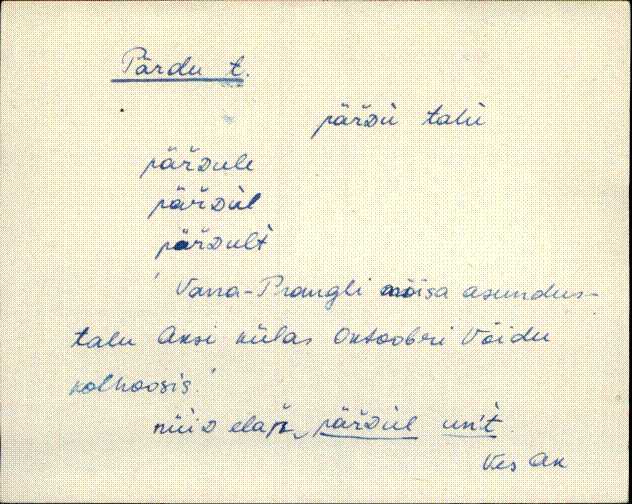 Pärdu t.
päřᴅù talù
päřᴅule
päřᴅùl
päřᴅult
Vana-Prangli mõisa asundus-
talu Aksi külas Oktoobri Võidu
kolhoosis.
nüiᴅ elaʙ päřᴅùl un't
Ves Ak